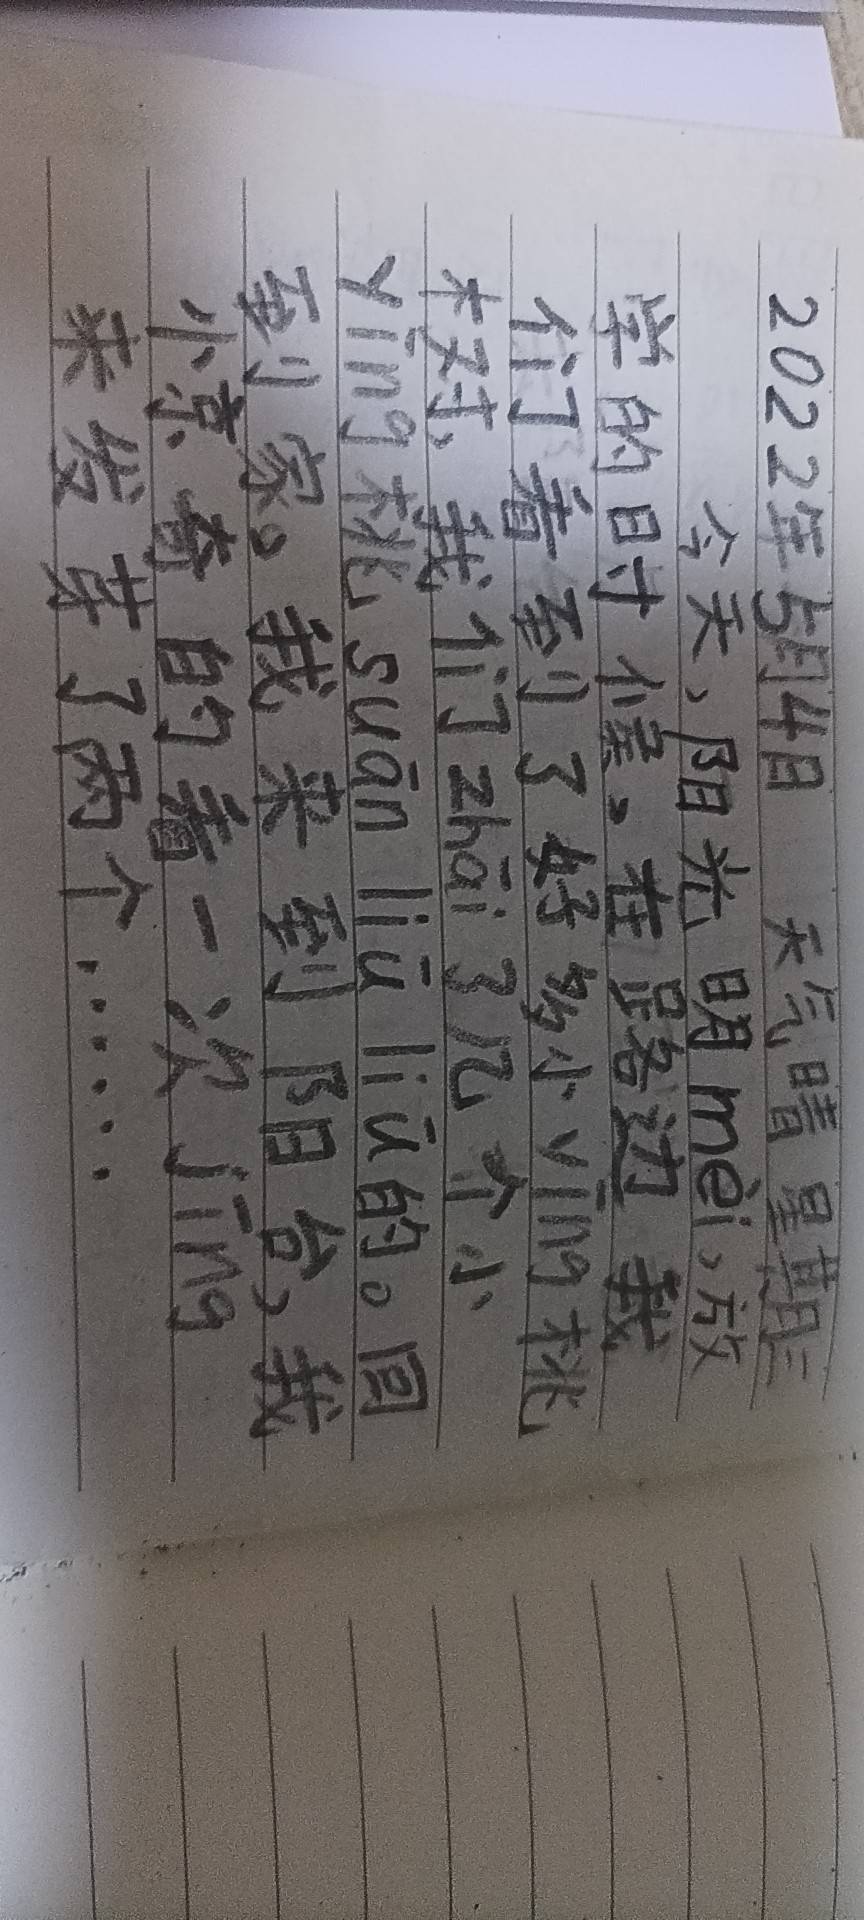 2022年5月4日 天气晴 星期三
今天、阳光明mèi、放
学的时候、在路边 我
们看到了好多小yīng桃
树、我们zhāi了几个小
yīng桃 suān liū liū的。回
到家。我来到阳台、我
小京奇的看一次jīng
来发芽了两个……